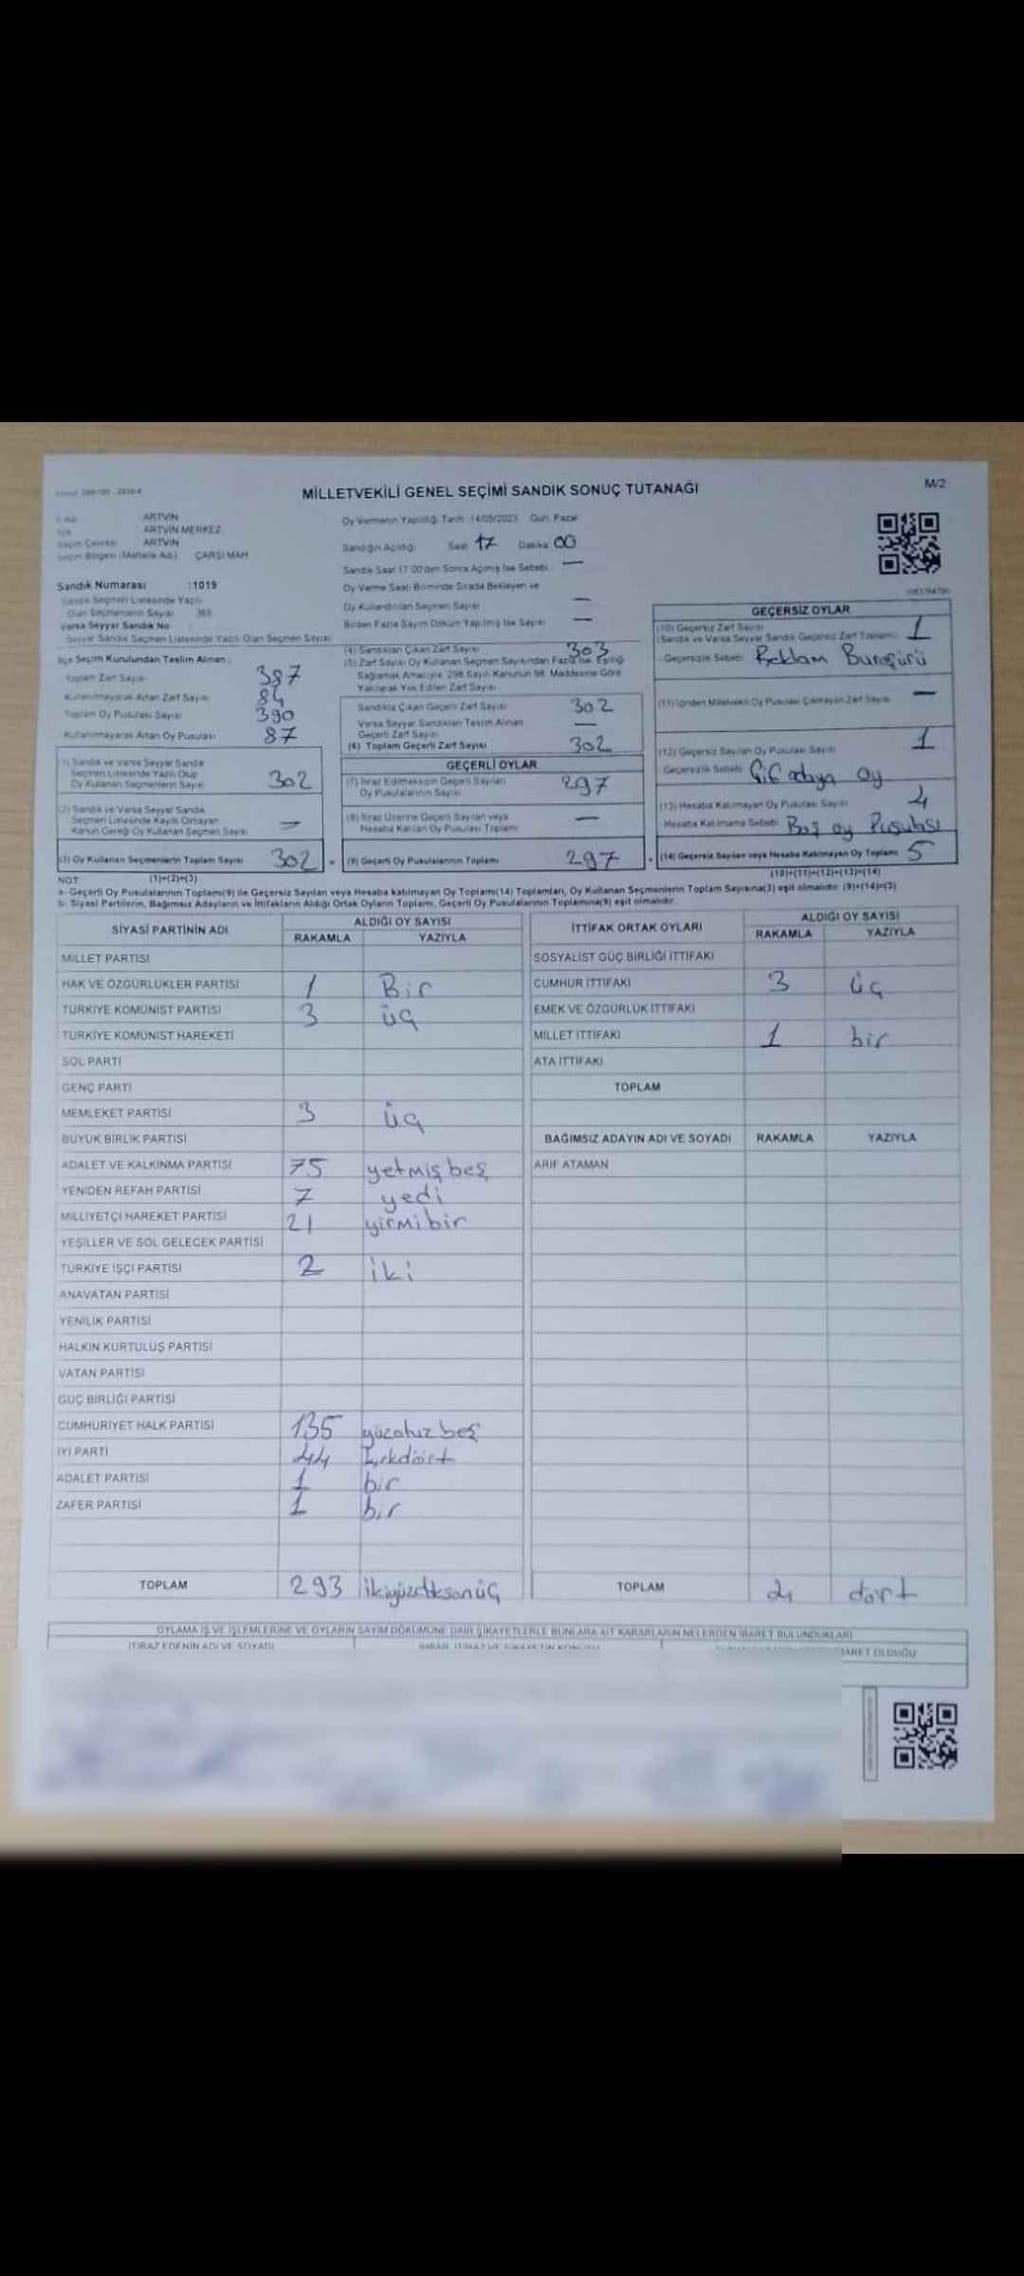 MİLLETVEKİLİ GENEL SEÇİMİ SANDIK SONUÇ TUTANAĞI
M/2
ARTVİN
ARTVİN MERKEZ
ARTVİN
Seçim Bölgesi (Mahalle Adı) ÇARŞI MAH
Sandık Numarası :1019
Sandık Seçmen Listesinde Yazılı
Olan Seçmenlerin Sayısı
Varsa Seyyar Sandık No
Seyyar Sandık Seçmen Listesinde Yazılı Olan Seçmen Sayısı
İlçe Seçim Kurulundan Teslim Alınan
Toplam Zarf Sayısı 387
Kullanılmayarak Artan Zarf Sayısı 84
Toplam Oy Pusulası Sayısı 390
Kullanılmayarak Artan Oy Pusulası 87
(1) Sandık ve Varsa Seyyar Sandık
Seçmen Listesinde Yazılı Olup
Oy Kullanan Seçmenlerin Sayısı 302
(2) Sandık ve Varsa Seyyar Sandık
Seçmen Listesinde Kayıtlı Olmayan
Kanun Gereği Oy Kullanan Seçmen Sayısı —
(3) Oy Kullanan Seçmenlerin Toplam Sayısı 302
Oy Vermenin Yapıldığı Tarih :14/05/2023 Gün: Pazar
Sandığın Açıldığı Saat 17 Dakika 00
Sandık Saat 17:00'den Sonra Açılmış İse Sebebi —
Oy Verme Saati Bitiminde Sırada Bekleyen ve
Oy Kullandırılan Seçmen Sayısı —
Birden Fazla Sayım Döküm Yapılmış İse Sayısı —
(4) Sandıktan Çıkan Zarf Sayısı 303
(5) Zarf Sayısı Oy Kullanan Seçmen Sayısından Fazla İse, Eşitliği
Sağlamak Amacıyla, 298 Sayılı Kanunun 98. Maddesine Göre
Yakılarak Yok Edilen Zarf Sayısı
Sandıkta Çıkan Geçerli Zarf Sayısı 302
Varsa Seyyar Sandıktan Teslim Alınan
Geçerli Zarf Sayısı —
(6) Toplam Geçerli Zarf Sayısı 302
GEÇERLİ OYLAR
(7) İtiraz Edilmeksizin Geçerli Sayılan
Oy Pusulalarının Sayısı 297
(8) İtiraz Üzerine Geçerli Sayılan veya
Hesaba Katılan Oy Pusulası Toplamı —
(9) Geçerli Oy Pusulalarının Toplamı 297
GEÇERSİZ OYLAR
(10) Geçersiz Zarf Sayısı
(Sandık ve Varsa Seyyar Sandık Geçersiz Zarf Toplamı) 1
Geçersizlik Sebebi Reklam
(11) İçinden Milletvekili Oy Pusulası Çıkmayan Zarf Sayısı —
(12) Geçersiz Sayılan Oy Pusulası Sayısı 1
Geçersizlik Sebebi Çif adaya oy
(13) Hesaba Katılmayan Oy Pusulası Sayısı 4
Hesaba Katılmama Sebebi Boş oy Pusulası
(14) Geçersiz Sayılan veya Hesaba Katılmayan Oy Toplamı 5
NOT: (1)+(2)=(3)
(10)+(11)+(12)+(13)=(14)
a- Geçerli Oy Pusulalarının Toplamı(9) ile Geçersiz Sayılan veya Hesaba katılmayan Oy Toplamı(14) Toplamları, Oy Kullanan Seçmenlerin Toplam Sayısına(3) eşit olmalıdır. (9)+(14)=(3)
b- Siyasi Partilerin, Bağımsız Adayların ve İttifakların Aldığı Ortak Oyların Toplamı, Geçerli Oy Pusulalarının Toplamına(9) eşit olmalıdır.
SİYASİ PARTİNİN ADI ALDIĞI OY SAYISI
RAKAMLA YAZIYLA
MİLLET PARTİSİ
HAK VE ÖZGÜRLÜKLER PARTİSİ 1 Bir
TÜRKİYE KOMÜNİST PARTİSİ 3 üç
TÜRKİYE KOMÜNİST HAREKETİ
SOL PARTİ
GENÇ PARTİ
MEMLEKET PARTİSİ 3 üç
BÜYÜK BİRLİK PARTİSİ
ADALET VE KALKINMA PARTİSİ 75 yetmiş beş
YENİDEN REFAH PARTİSİ 7 yedi
MİLLİYETÇİ HAREKET PARTİSİ 21 yirmi bir
YEŞİLLER VE SOL GELECEK PARTİSİ
TÜRKİYE İŞÇİ PARTİSİ 2 iki
ANAVATAN PARTİSİ
YENİLİK PARTİSİ
HALKIN KURTULUŞ PARTİSİ
VATAN PARTİSİ
GÜÇ BİRLİĞİ PARTİSİ
CUMHURİYET HALK PARTİSİ 135 yüzotuz beş
İYİ PARTİ 44 kırkdört
ADALET PARTİSİ 1 bir
ZAFER PARTİSİ 1 bir
TOPLAM 293 ikiyüzdoksanüç
İTTİFAK ORTAK OYLARI ALDIĞI OY SAYISI
RAKAMLA YAZIYLA
SOSYALİST GÜÇ BİRLİĞİ İTTİFAKI
CUMHUR İTTİFAKI 3 üç
EMEK VE ÖZGÜRLÜK İTTİFAKI
MİLLET İTTİFAKI 1 bir
ATA İTTİFAKI
TOPLAM
BAĞIMSIZ ADAYIN ADI VE SOYADI RAKAMLA YAZIYLA
ARİF ATAMAN
TOPLAM 4 dört
OYLAMA İŞ VE İŞLEMLERİNE VE OYLARIN SAYIM DÖKÜMÜNE DAİR ŞİKAYETLERLE BUNLARA AİT KARARLARIN NELERDEN İBARET BULUNDUKLARI
İTİRAZ EDENİN ADI VE SOYADI
İBARET OLDUĞU